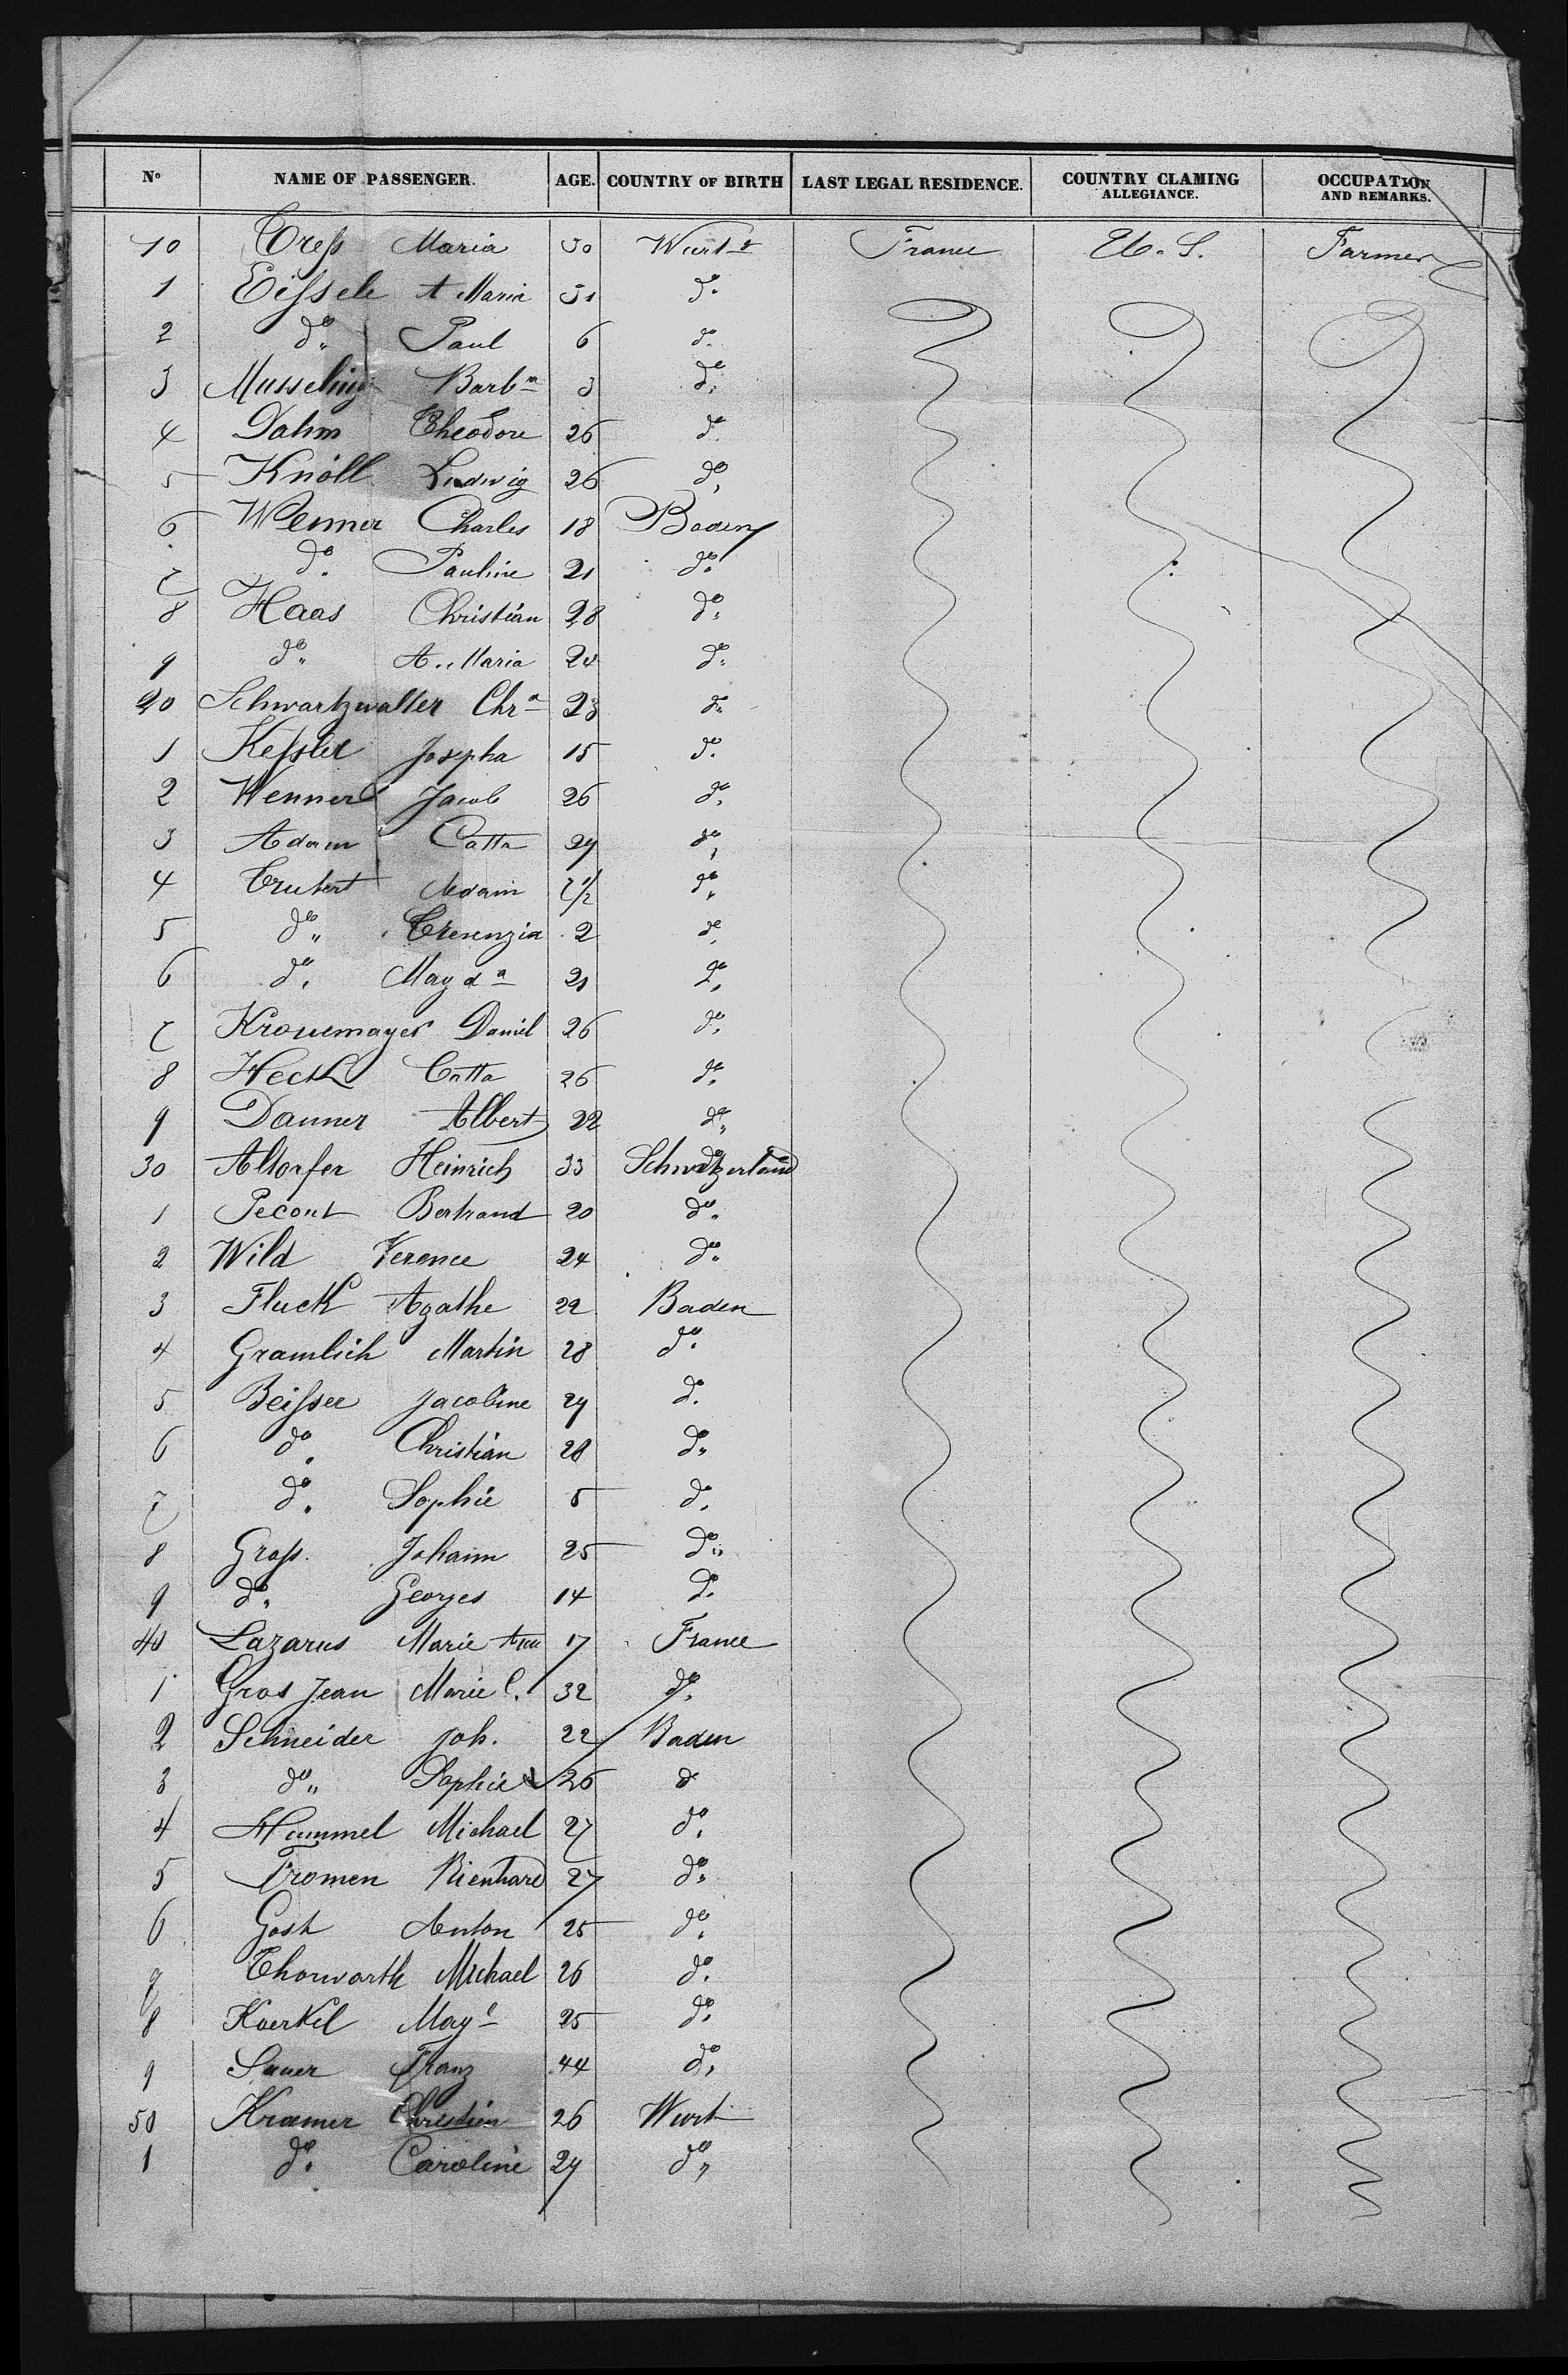 No NAME OF PASSENGER. AGE. COUNTRY OF BIRTH LAST LEGAL RESIDENCE. COUNTRY CLAMING ALLEGIANCE. OCCUPATION AND REMARKS.
10 Cress Maria 50 Wurt France U. S. Farmer
1 Eissele A Maria 51 do
2 do Paul 6 do
3 Musseling Barba 3 do
4 Dahm Theodore 26 do
5 Knöll Ludwig 26 do
6 Wenner Charles 18 Baden
7 do Pauline 21 do
8 Haas Christian 28 do
9 do A. Maria 24 do
20 Schwartzwalter Chra 23 do
1 Kessler Josepha 15 do
2 Wenner Jacob 26 do
3 Adam Catta 29 do
4 Trutert Adam 7/2 do
5 do Cresenzia 2 do
6 do Magda 21 do
7 Kronemayer Daniel 26 do
8 Heck Catta 26 do
9 Danner Albert 22 do
30 Altorfer Heinrich 33 Schwitzerland
1 Pecont Bertrand 20 do
2 Wild Verence 24 do
3 Fluck Agathe 22 Baden
4 Gramlich Martin 28 do
5 Beisser Jacobine 29 do
6 do Christian 28 do
7 do Sophie 5 do
8 Gross Johann 25 do
9 do Georges 14 do
40 Lazarus Marie Ann 17 France
1 Gros Jean Marie C. 32 do
2 Schneider Joh. 22 Baden
3 do Sophie 26 do
4 Hummel Michael 27 do
5 Fromen Rienhard 27 do
6 Gosh Anton 25 do
7 Thorwarth Michael 26 do
8 Koerkel 25 do
9 Sauer Franz 44 do
50 Kramer Christian 26 Wurt
1 do Caroline 29 do